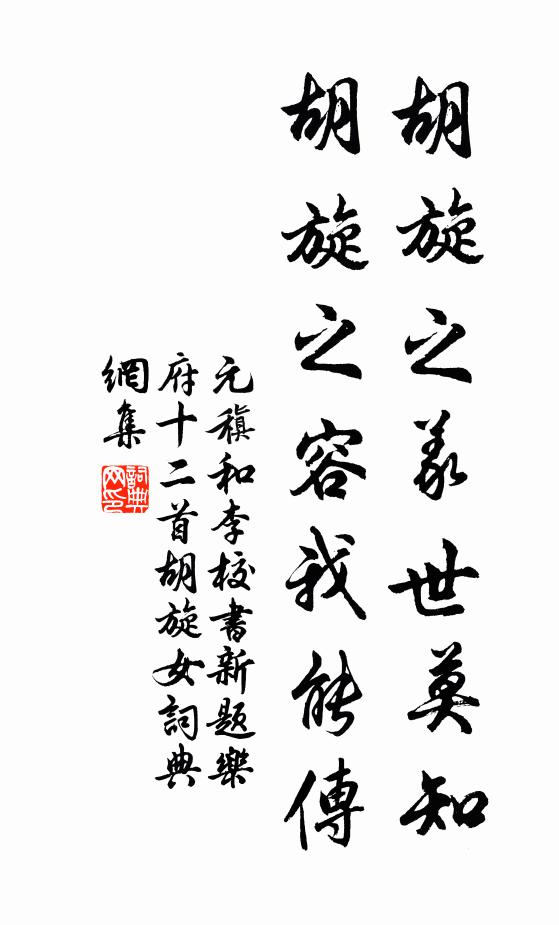 胡旋之義世莫知
胡旋之容我能傳
元稹和李校書新題樂
府十二首胡旋女詞典
網集
詞典網印